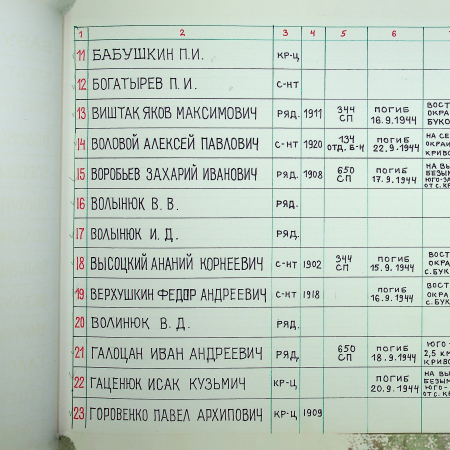 1 2 3 4 5 6
11 БАБУШКИН П.И. КР-Ц
12 БОГАТЫРЕВ П.И. С-НТ
13 ВИШТАК ЯКОВ МАКСИМОВИЧ РЯД. 1911 344 СП ПОГИБ 16.9.1944 ВОСТ ОКРА БУКО
14 ВОЛОВОЙ АЛЕКСЕЙ ПАВЛОВИЧ С-НТ 1920 134 ОТД. Б-Н ПОГИБ 22.9.1944 НА СЕ ОКРАИ КРИВО
15 ВОРОБЬЕВ ЗАХАРИЙ ИВАНОВИЧ РЯД. 1908 650 СП ПОГИБ 17.9.1944 НА ВЫ БЕЗЫМ ЮГО-ЗА ОТ С. КР
16 ВОЛЫНЮК В. В. РЯД.
17 ВОЛЫНЮК И. Д. РЯД.
18 ВЫСОЦКИЙ АНАНИЙ КОРНЕЕВИЧ С-НТ 1902 344 СП ПОГИБ 15.9.1944 ВОСТ ОКРА С. БУК
19 ВЕРХУШКИН ФЕДОР АНДРЕЕВИЧ С-НТ 1918 ПОГИБ 16.9.1944 ВОСТ ОКРА С. БУК
20 ВОЛИНЮК В. Д. РЯД.
21 ГАЛОЦАН ИВАН АНДРЕЕВИЧ РЯД. 650 СП ПОГИБ 18.9.1944 ЮГО- 2,5 КМ КРИВО
22 ГАЦЕНЮК ИСАК КУЗЬМИЧ КР-Ц ПОГИБ 20.9.1944 НА ВЫ БЕЗЫМ ЮГО- ОТ С. КР
23 ГОРОВЕНКО ПАВЕЛ АРХИПОВИЧ КР-Ц 1909